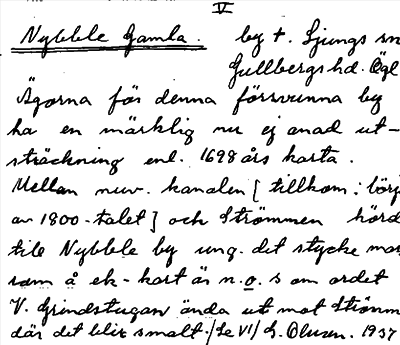 V
Nybble Gamla. by †. Ljungs sn
Gullbergs hd. Ögl
Ägorna för denna försvunna by
ha en märklig nu ej anad ut-
sträckning enl. 1698 års karta.
Mellan nuv. kanalen [tillkom i börj
av 1800-talet] och Strömmen hörd
till Nybble by ung. det stycke mar
som å ek-kart är n.o. s om ordet
V. Grindstugan ända ut mot Strömm
där det blir smalt. /Se VI/ G. Olsson. 1937